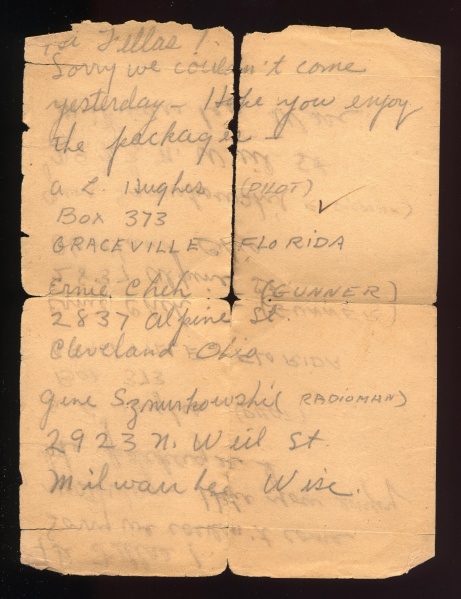 Hi Fellas!
Sorry we couldn't come
yesterday - Hope you enjoy
the packages -
A L. Hughes (PILOT)
Box 373
GRACEVILLE FLORIDA
Ernie (GUNNER)
2837 Alpine St.
Cleveland Ohio
Gene (RADIOMAN)
2923 N. Weil St.
Milwaukee Wisc.